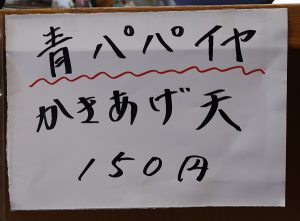 青パパイヤ
かきあげ天
150円